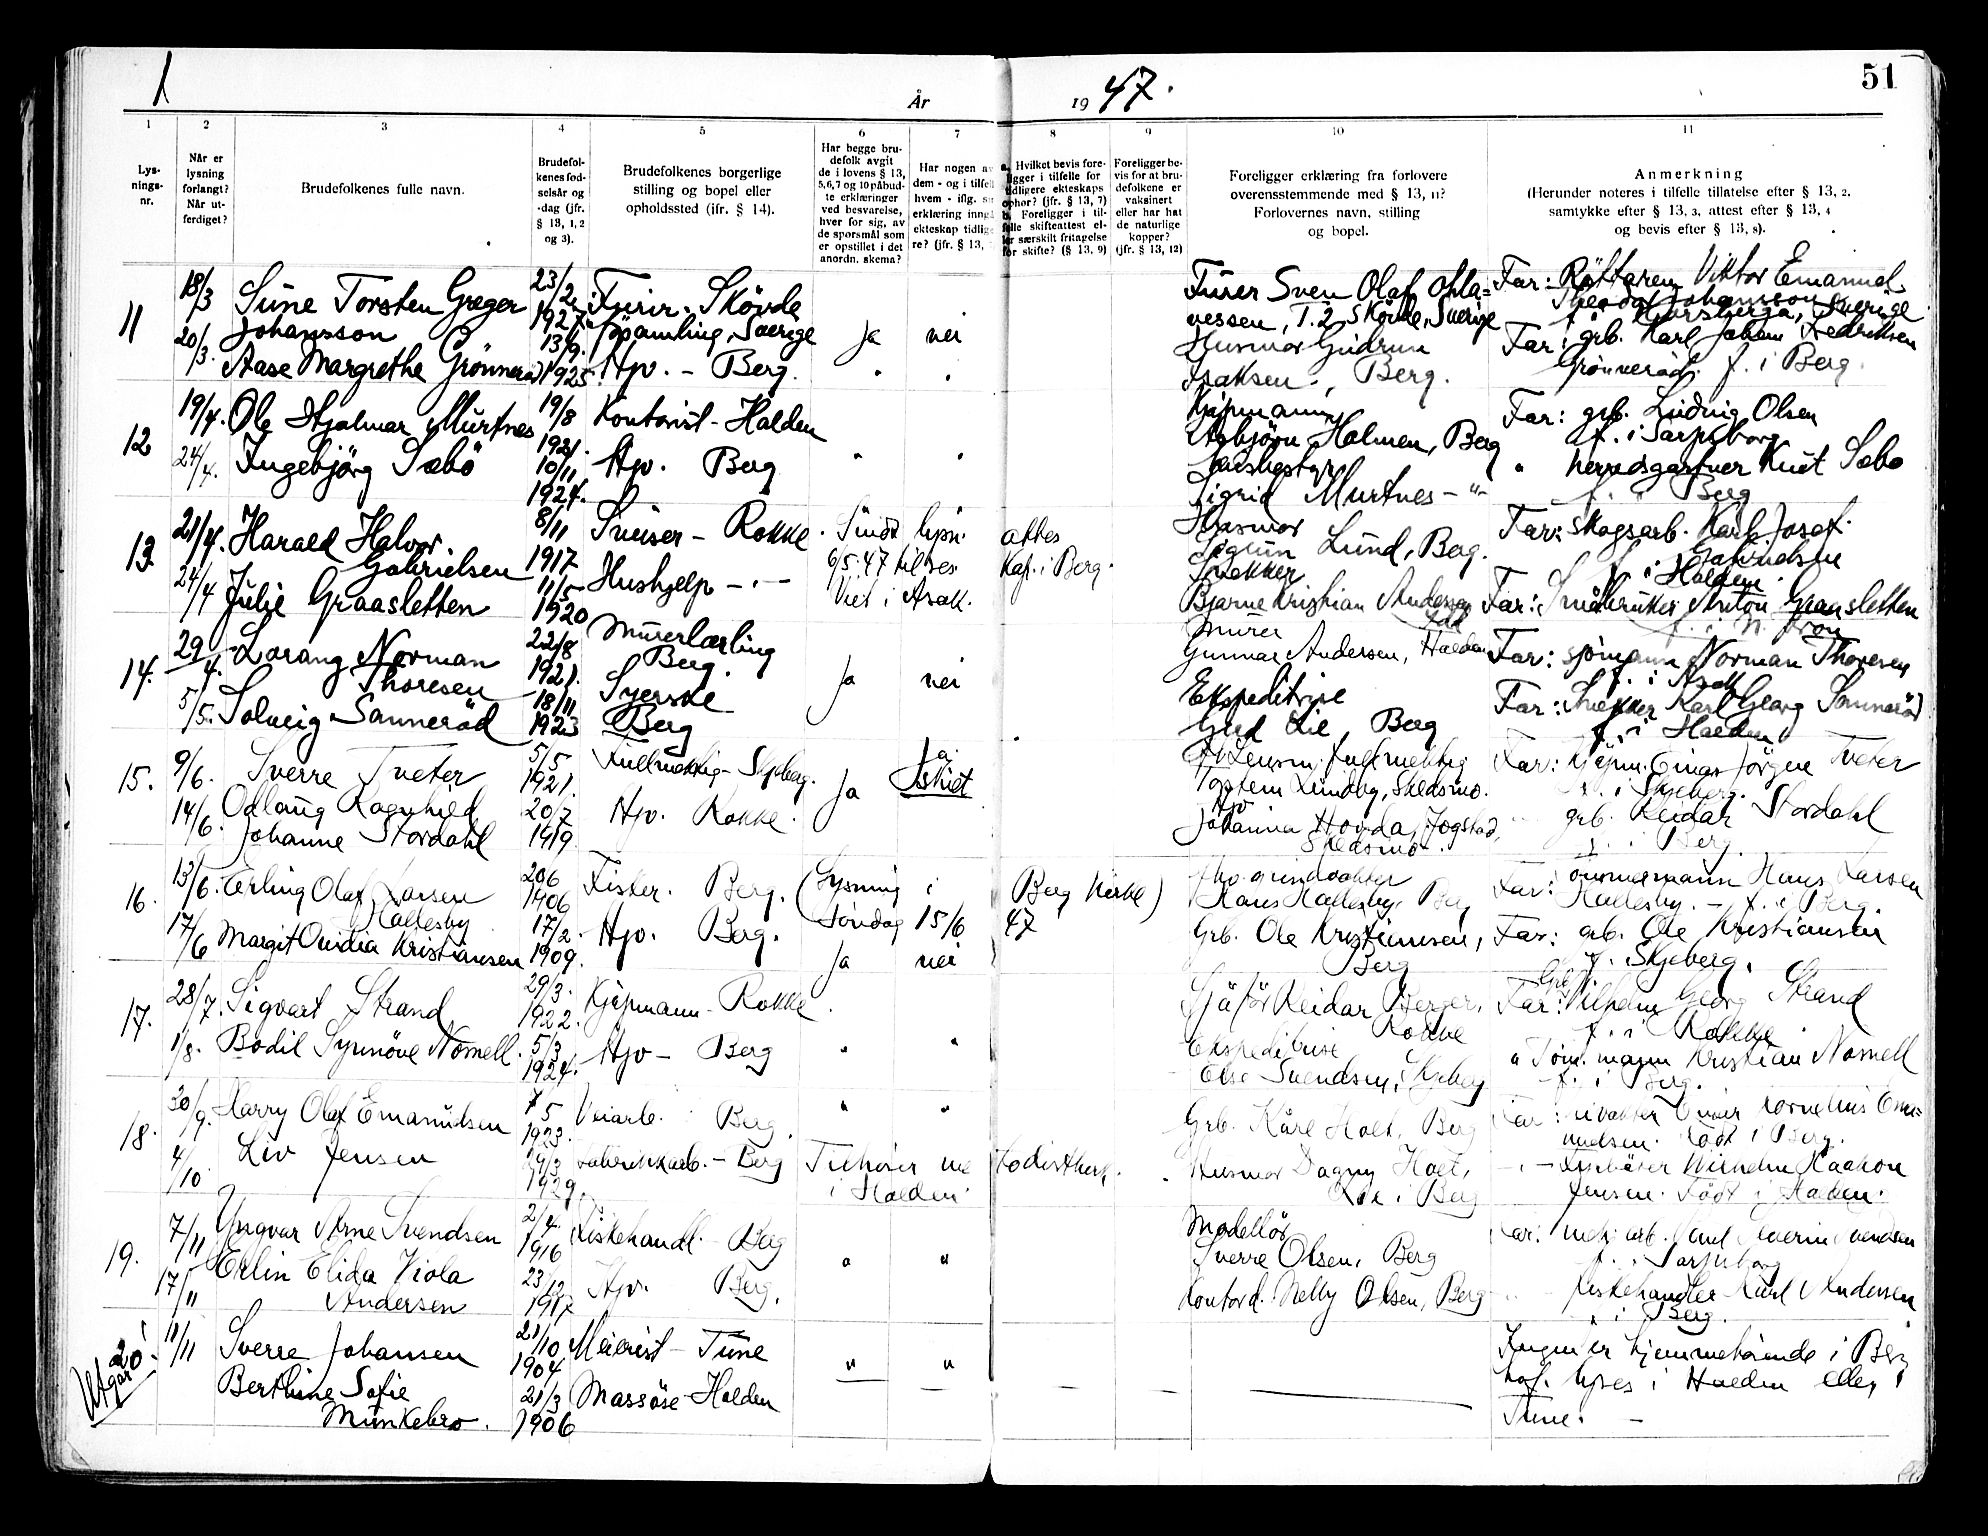 1
År
19 47.
51
1 2 3 4 5 6 7 8 9 10 11
Lys-
nings-
nr.
Når er
lysning
forlangt?
Når ut-
ferdiget?
Brudefolkenes fulle navn.
Brudefol-
kenes fød-
selsår og
-dag (jfr.
§ 13, 1, 2
og 3).
Brudefolkenes borgerlige
stilling og bopel eller
opholdssted (ifr. § 14).
Har begge bru-
defolk avgit
de i lovens § 13,
5,6,7 og 10 påbud-
te erklæringer
ved besvarelse,
hver for sig, av
de spørsmål som
er opstillet i det
anordn. skema?
Har nogen av
dem - og i tilfelle
hvem - iflg.
erklæring inngå
ekteskap tidlige
re? (jfr. § 13,
Hvilket bevis fore-
ligger i tilfelle for
tidligere ekteskaps
ophør? (jfr. § 13, 7)
b. Foreligger i til-
felle skifteattest el-
ler særskilt fritagelse
for skifte? (§ 13, 9)
Foreligger be-
vis for at bru-
defolkene er
vaksinert
eller har hat
de naturlige
kopper?
(jfr. § 13, 12)
Foreligger erklæring fra forlovere
overensstemmende med § 13, 11?
Forlovernes navn, stilling
og bopel.
Anmerkning
(Herunder noteres i tilfelle tillatelse efter § 13, 2.
samtykke efter § 13, 3, attest efter § 13, 4
og bevis efter § 13, 8).
11
18/3
20/3.
Sune Torsten Greger
Johansson
Aase Margrethe Grønnerød
23/2
1927
13/9.
1925.
Furir. Skövde
Sverige
Hjv. - Berg.
Ja nei
Furer Sven Olof
T.2 Skövde, Sverige
Husmor Gudrun
Isaksen, Berg.
Far: Rättaren Viktor Emanuel
Sverige
Far: grb. Karl Johan Fredriksen
Grønnerød. f. i Berg.
12
19/4.
24/4.
Ole Hjalmar Murtnes
Ingebjörg Sæbö
19/8
1921.
10/11
1924.
Kontorist - Halden
Hjv. Berg
" "
Kjøpmann
Asbjörn Holmen, Berg
Sigrid Murtnes - " -
Far: grb. Ludvig Olsen
f. i Sarpsborg
" herredsgartner Knut Sæbø
f. i Berg
13
21/4.
24/4
Harald Halvor.
Gabrielsen
Julie Graasletten
8/11
1917
11/5
1920
Snekker - Rokke.
Hushjelp - " -
lysn. attes
6/5.47 til res. Kap. i Berg.
Viet i Asak.
Husmor
Lund, Berg.
Snekker
Bjarne Kristian Andersen
Far: skogsarb. Karl Josef
Gabrielsen
f. i Halden.
Far: Småbruker Anton Graasletten
14.
29/4.
5/5.
Lorang Norman
Thoresen
Solveig Sannerød
22/8
1921.
18/11
1923
Murerlærling
Berg.
Syerske
Berg
Ja nei
Murer
Gunnar Andersen, Halden
Ekspeditrise
Lie, Berg
Far: sjömann Norman Thoresen
f. i Asak
Far: Snekker Karl Georg Sannerød
f. i Halden
15.
9/6.
14/6.
Sverre Tveter
Odlaug Ragnhild
Johanne Stordahl
5/5
1921.
20/7
1919
Fullmektig - Skjeberg.
Hjv. Rokke.
Ja Ja
Skilt
fullmektig
Torstein Lundby, Skedsmo.
Hjv
Johanna Hovda, Jogstad,
Skedsmo.
Far: Kjøpm. Einar Jörgen Tveter
f. i Skjeberg.
" grb. Reidar Stordahl
f. i Berg
16.
13/6.
17/6
Erling Olaf Larsen
Kallesby
Margit Ovidia Kristiansen
20/6
1906
17/2.
1909.
Fisker. Berg.
Hjv. Berg.
(Lysning i Berg Kirke)
Söndag 15/6 47
Ja nei
Hans Kallesby, Berg
Grb. Ole Kristiansen,
Berg
Far: tömmermann Hans Larsen
Kallesby. - f. i Berg.
Far: grb. Ole Kristiansen
f. Skjeberg.
17.
28/7.
1/8.
Sigvart Strand
Bodil Synnöve Nornell.
29/3.
1922.
5/3
1924.
Kjøpmann - Rokke.
Hjv - Berg
" "
Sjåför Reidar Berger,
Rokke
Ekspeditrise
Else Svendsen, Skjeberg
Grb.
Far: Vilhelm Georg Strand
f. i Rokke
" Töm.mann Kristian Nornell
f. i Berg.
18.
30/9.
4/10
Harry Olaf Emanuelsen
Liv Jensen
7/5
1923.
19/3
1929.
Veiarb. Berg.
Fabrikkarb. - Berg
" "
Tilhører metodistkirk.
i Halden.
Grb. Kåre Holt, Berg
Husmor Dagny Holt,
Lie i Berg
Far: Emanuelsen. Född i Berg.
- " - Wilhelm Haakon
Jensen. Född i Halden.
19.
7/11
17/11
Yngvar Arne Svendsen
Erlin Elida Viola
Andersen
2/4.
1916
23/12
1917
Fiskehandl. - Berg
Hjv. Berg.
" "
Modellör
Sverre Olsen, Berg
Kontord. Nelly Olsen, Berg
Far: Severin Svendsen
f. i Sarpsborg
- " - fiskehandler Karl Andersen
f. i Berg.
20.
Utgår!
11/11
Sverre Johansen
Berthine Sofie
Munkebro.
21/10
1904
21/3
1906
Meierist - Tune
Massöse - Halden
" "
Ingen er hjemmehörende i Berg
lyses i Halden eller i
Tune. -